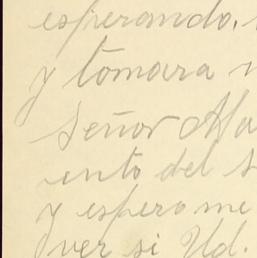 esperando.
y tomara
Señor
ento del s
y espero me
ver si Ud.